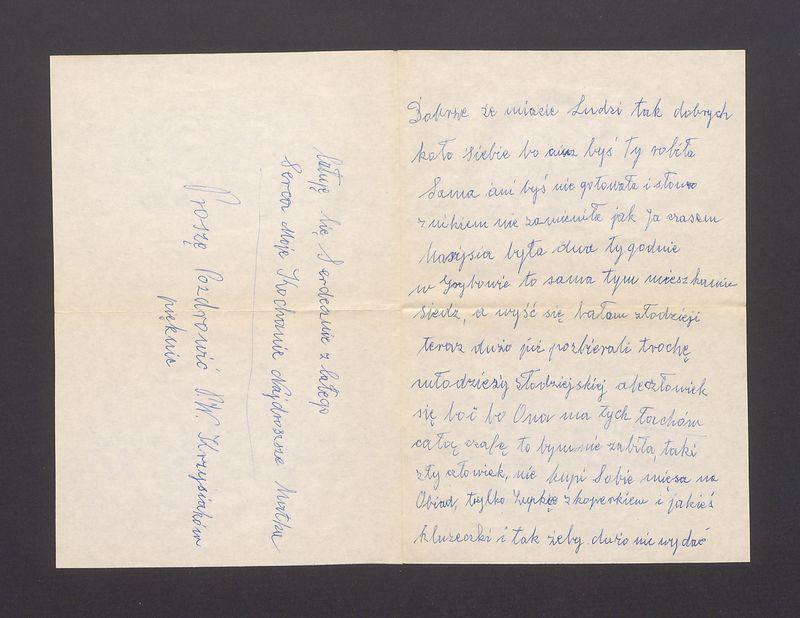 Dobrze że miacie Ludzi tak dobrych
koło Siebie bo aniu byś Ty robiła
Sama ani byś nie gotowała i słowa
z nikiem nie zamieniła jak Ja czasem
Marysia była dwa tygodnie
w Grybowie to sama tym mieszkaniu
siedz, a wyść się bałam złodzieji
teraz dużo już pozbierali trochę
młodzieży złodziejskiej aleczłowiek
się boi bo Ona ma tych łachów
całą szafę to bymnie zabiła, taki
zły człowiek, nie kupi Sobie mięsa na
Obiad, tylko Zupkę z koperkiem i jakieś
kluseczki i tak żeby dużo nie wydać
łatuję Cię Serdecznie z całego
Serca Moje Kochanie Najdroższe Matka
Proszę Pozdrowić P.W. Krzysiaków
pięknie